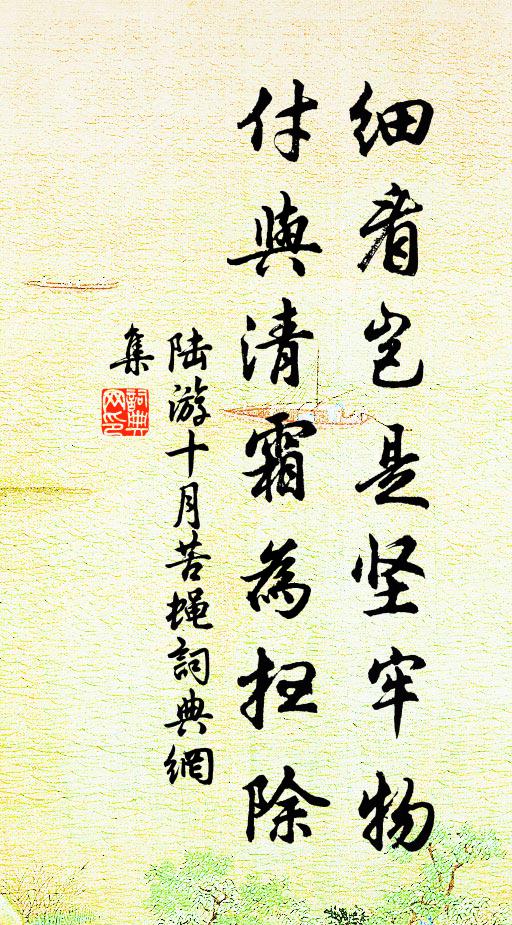 细看岂是坚牢物
付与清霜为扫除
陆游十月苦蝇詞典網
集
詞典
网印